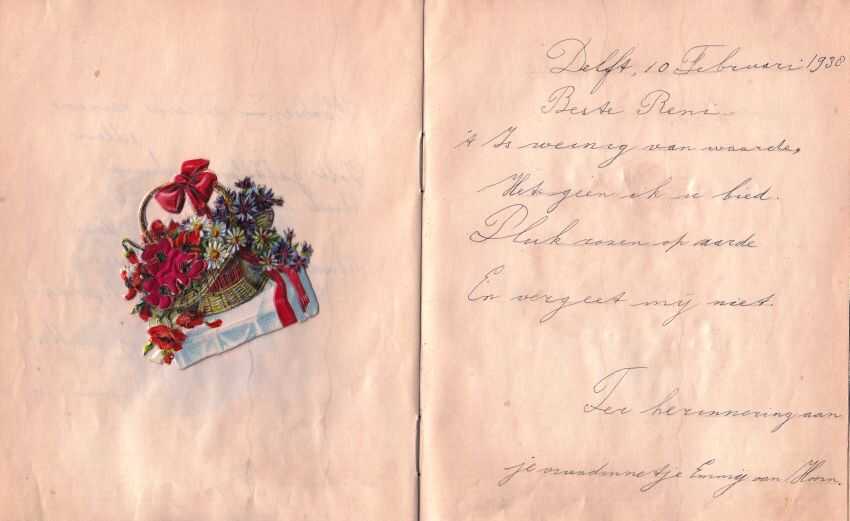 Delft, 10 Februari 1938
Beste Reni
't Is weinig van waarde,
Het geen ik u bied.
Pluk rozen op aarde
En vergeet mij niet.
Ter herinnering aan
je vriendinnetje Emmy van Hoorn.